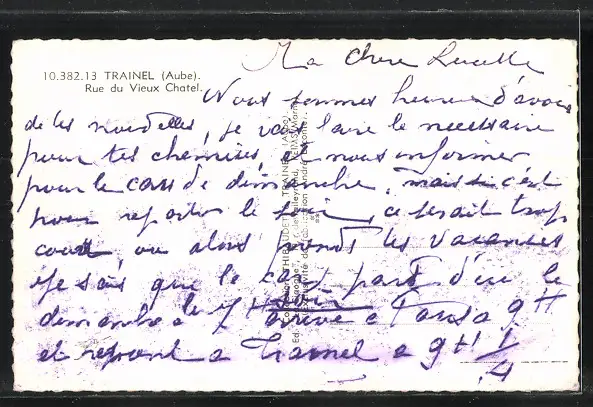 10.382.13 TRAINEL (Aube).
Rue du Vieux Chatel.
Ma chere Lucette
Nous sommes heureux d'avoir
de tes nouvelles, je vais faire le necessaire
pour tes chemises, et nous informer
pour le car de dimanche, mais si c'est
pour repartir le soir, ce serait trop
court, ou alors prends tes vacances
je sais que le car part d'ici le
dimanche a 17 H arrive a Paris a 9H
et repart a Trainel a 9H 1/4